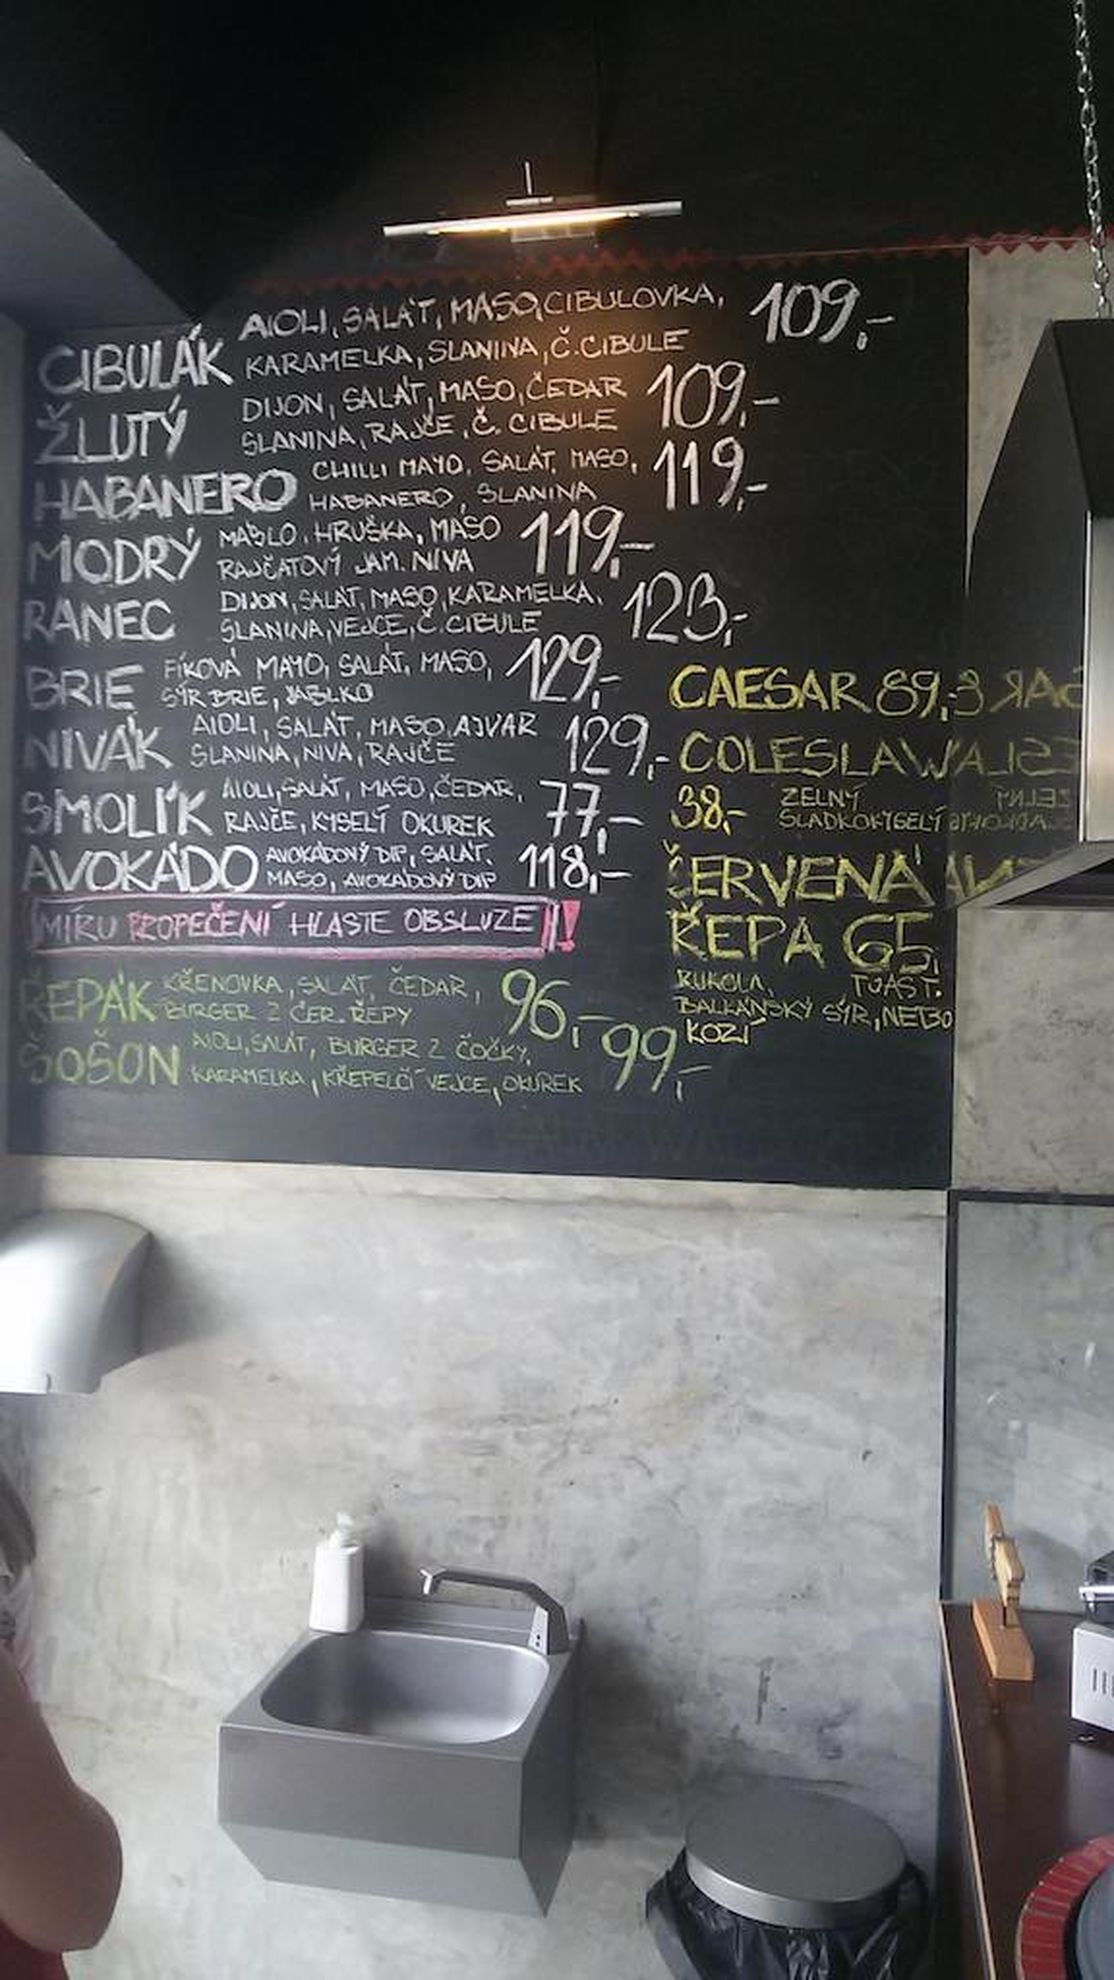 CIBULÁK AIOLI, SALÁT, MASO, CIBULOVKA, 109,-
KARAMELKA, SLANINA, Č.CIBULE
ŽLUTÝ DIJON, SALÁT, MASO, ČEDAR 109,-
SLANINA, RAJČE, Č. CIBULE
HABANERO CHILLI MAYO, SALÁT, MASO, 119,-
HABANERO, SLANINA
MODRÝ MÁSLO, HRUŠKA, MASO 119,-
RAJČATOVÝ JAM. NIVA
RANEC DIJON, SALÁT, MASO, KARAMELKA, 123,-
SLANINA, VEJCE, Č.CIBULE
BRIE FÍKOVÁ MAYO, SALÁT, MASO, 129,-
SÝR BRIE, JABLKO
NIVÁK AIOLI, SALÁT, MASO, AJVAR 129,-
SLANINA, NIVA, RAJČE
SMOLÍK AIOLI, SALÁT, MASO, ČEDAR, 77,-
RAJČE, KYSELÝ OKUREK
AVOKÁDO AVOKÁDOVÝ DIP, SALÁT, 118,-
MASO, AVOKÁDOVÝ DIP
MÍRU PROPEČENÍ HLASTE OBSLUZE!!
ŘEPÁK KŘENOVKA, SALÁT, ČEDAR, 96,-
BURGER Z ČER. ŘEPY
ŠOŠON AIOLI, SALÁT, BURGER Z ČOČKY, 99,-
KARAMELKA, KŘEPELČÍ VEJCE, OKUREK
CAESAR 89,-
COLESLAW
38,- ZELNÝ
SLADKOKYSELÝ
ČERVENÁ
ŘEPA 65,
RUKOLA, TOAST.
BALKÁNSKÝ SÝR, NEBO
KOZÍ